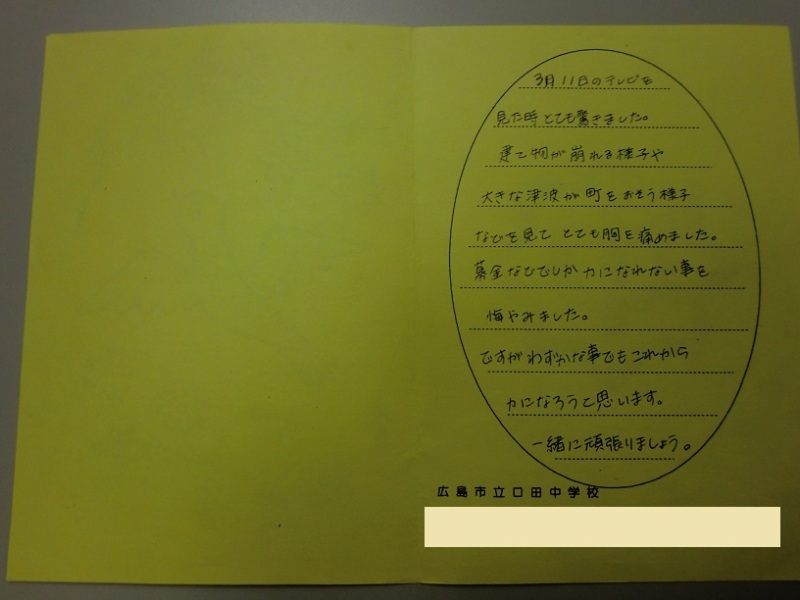 3月11日のテレビを
見た時とても驚きました。
建て物が崩れる様子や
大きな津波が町をおそう様子
などを見て とても胸を痛めました。
募金などでしか力になれない事を
悔やみました。
ですがわずかな事でもこれから
力になろうと思います。
一緒に頑張りましょう。
広島市立口田中学校